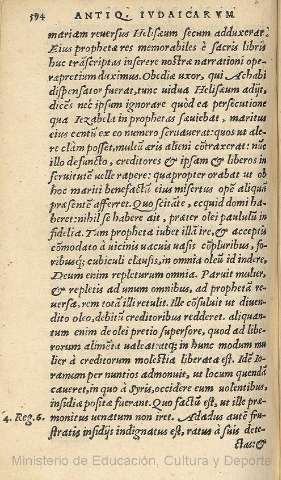 594 ANTIQ. IVDAICARVM
mariam reuersus Helisæum secum adduxerat.
Eius prophetæ res memorabiles è sacris libris
huc trāscriptas inserere nostræ narrationi operæ
præcium duximus. Obediæ uxor, qui Achabi
dispensator fuerat, tunc uidua Helisæum adijt,
dicēs nec ipsum ignorare quòd ea persecutione
qua Iezabela in prophetas sæuiebat, maritus
eius centū ex eo numero seruauerat: quos ut ale
re clàm posset, multū æris alieni cōtraxerat: nūc
illo defuncto, creditores & ipsam & liberos in
seruitutē uelle rapere: quapropter orabat ut ob
hoc mariti benefactū eius misertus opē aliquā
præsentē afferret. Quo scitāte, ecquid domi ha-
beret: nihil se habere ait, præter olei paululū in
fidelia. Tum propheta iubet illā ire, & acceptis
cōmodatò à uicinis uacuis uasis cōpluribus, fo-
ribusq; cubiculi clausis, in omnia oleū id indere,
Deum enim repleturum omnia. Paruit mulier,
& repletis ad unum omnibus, ad prophetā re-
uersa, rem totā illi retulit. Ille cōsuluit ut diuen-
dito oleo, debitū creditoribus redderet. aliquan-
tum enim de olei pretio superfore, quod ad libe-
rorum alimēta ualeat. atq; in hunc modum mu-
lier à creditorum molestia liberata est. Idē Io-
ramum per nuntios admonuit, ut locum quendā
caueret, in quo à Syris, occidere eum uolentibus,
insidiæ positæ fuerant. Quo factū est, ut ille præ-
4. Reg. 6. monitus uenatum non iret. Adadus autē fru-
stratis insidijs indignatus est, ratus à suis dete-
ctas: &
Ministerio de Educación, Cultura y Deporte